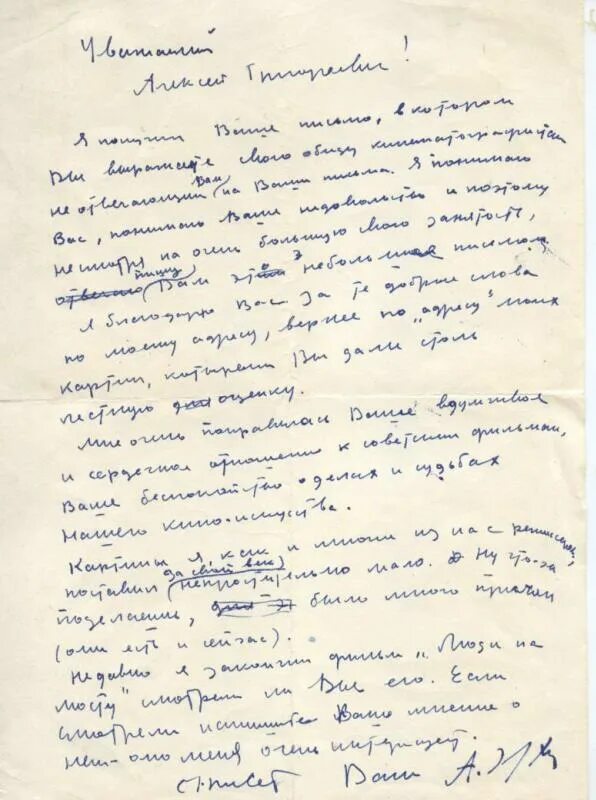 Уважаемый
Алексей Григорьевич!
Я получил Ваше письмо, в котором
Вы выражаете свою обиду кинематографистам
не отвечающим Вам на Ваши письма. Я понимаю
Вас, понимаю Ваше недовольство и поэтому
несмотря на очень большую свою занятость,
отвечаю пишу Вам это небольшое письмо.
Я благодарю Вас за те добрые слова
по моему адресу, вернее по „адресу" моих
картин, которым Вы дали столь
лестную оценку.
Мне очень понравилось Ваше вдумчивое
и сердечное отношение к советским фильмам,
Ваше беспокойство о делах и судьбах
нашего кино-искусства.
Картин я, как и многие из нас режиссеров,
поставил за свой век непростительно мало. Ну что-ж
поделаешь, было много причин
(они есть и сейчас).
Недавно я закончил фильм „Люди на
мосту" смотрели ли Вы его. Если
смотрели напишите Ваше мнение о
нем - оно меня очень интересует.
С прив��т Ваш А.